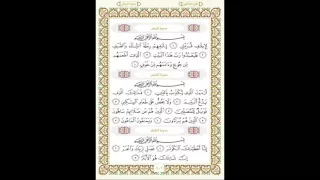 سورة قريش
بِسْمِ اللَّهِ الرَّحْمَٰنِ الرَّحِيمِ
لِإِيلَافِ قُرَيْشٍ ١ إِيلَافِهِمْ رِحْلَةَ الشِّتَاءِ وَالصَّيْفِ
٢ فَلْيَعْبُدُوا رَبَّ هَٰذَا الْبَيْتِ ٣ الَّذِي أَطْعَمَهُم
مِّن جُوعٍ وَآمَنَهُم مِّنْ خَوْفٍ ٤
سورة الماعون
بِسْمِ اللَّهِ الرَّحْمَٰنِ الرَّحِيمِ
أَرَأَيْتَ الَّذِي يُكَذِّبُ بِالدِّينِ ١ فَذَٰلِكَ الَّذِي
يَدُعُّ الْيَتِيمَ ٢ وَلَا يَحُضُّ عَلَىٰ طَعَامِ الْمِسْكِينِ ٣
فَوَيْلٌ لِّلْمُصَلِّينَ ٤ الَّذِينَ هُمْ عَن صَلَاتِهِمْ سَاهُونَ
٥ الَّذِينَ هُمْ يُرَاءُونَ ٦ وَيَمْنَعُونَ الْمَاعُونَ ٧
سورة الكوثر
بِسْمِ اللَّهِ الرَّحْمَٰنِ الرَّحِيمِ
إِنَّا أَعْطَيْنَاكَ الْكَوْثَرَ ١ فَصَلِّ لِرَبِّكَ وَانْحَرْ ٢
إِنَّ شَانِئَكَ هُوَ الْأَبْتَرُ ٣